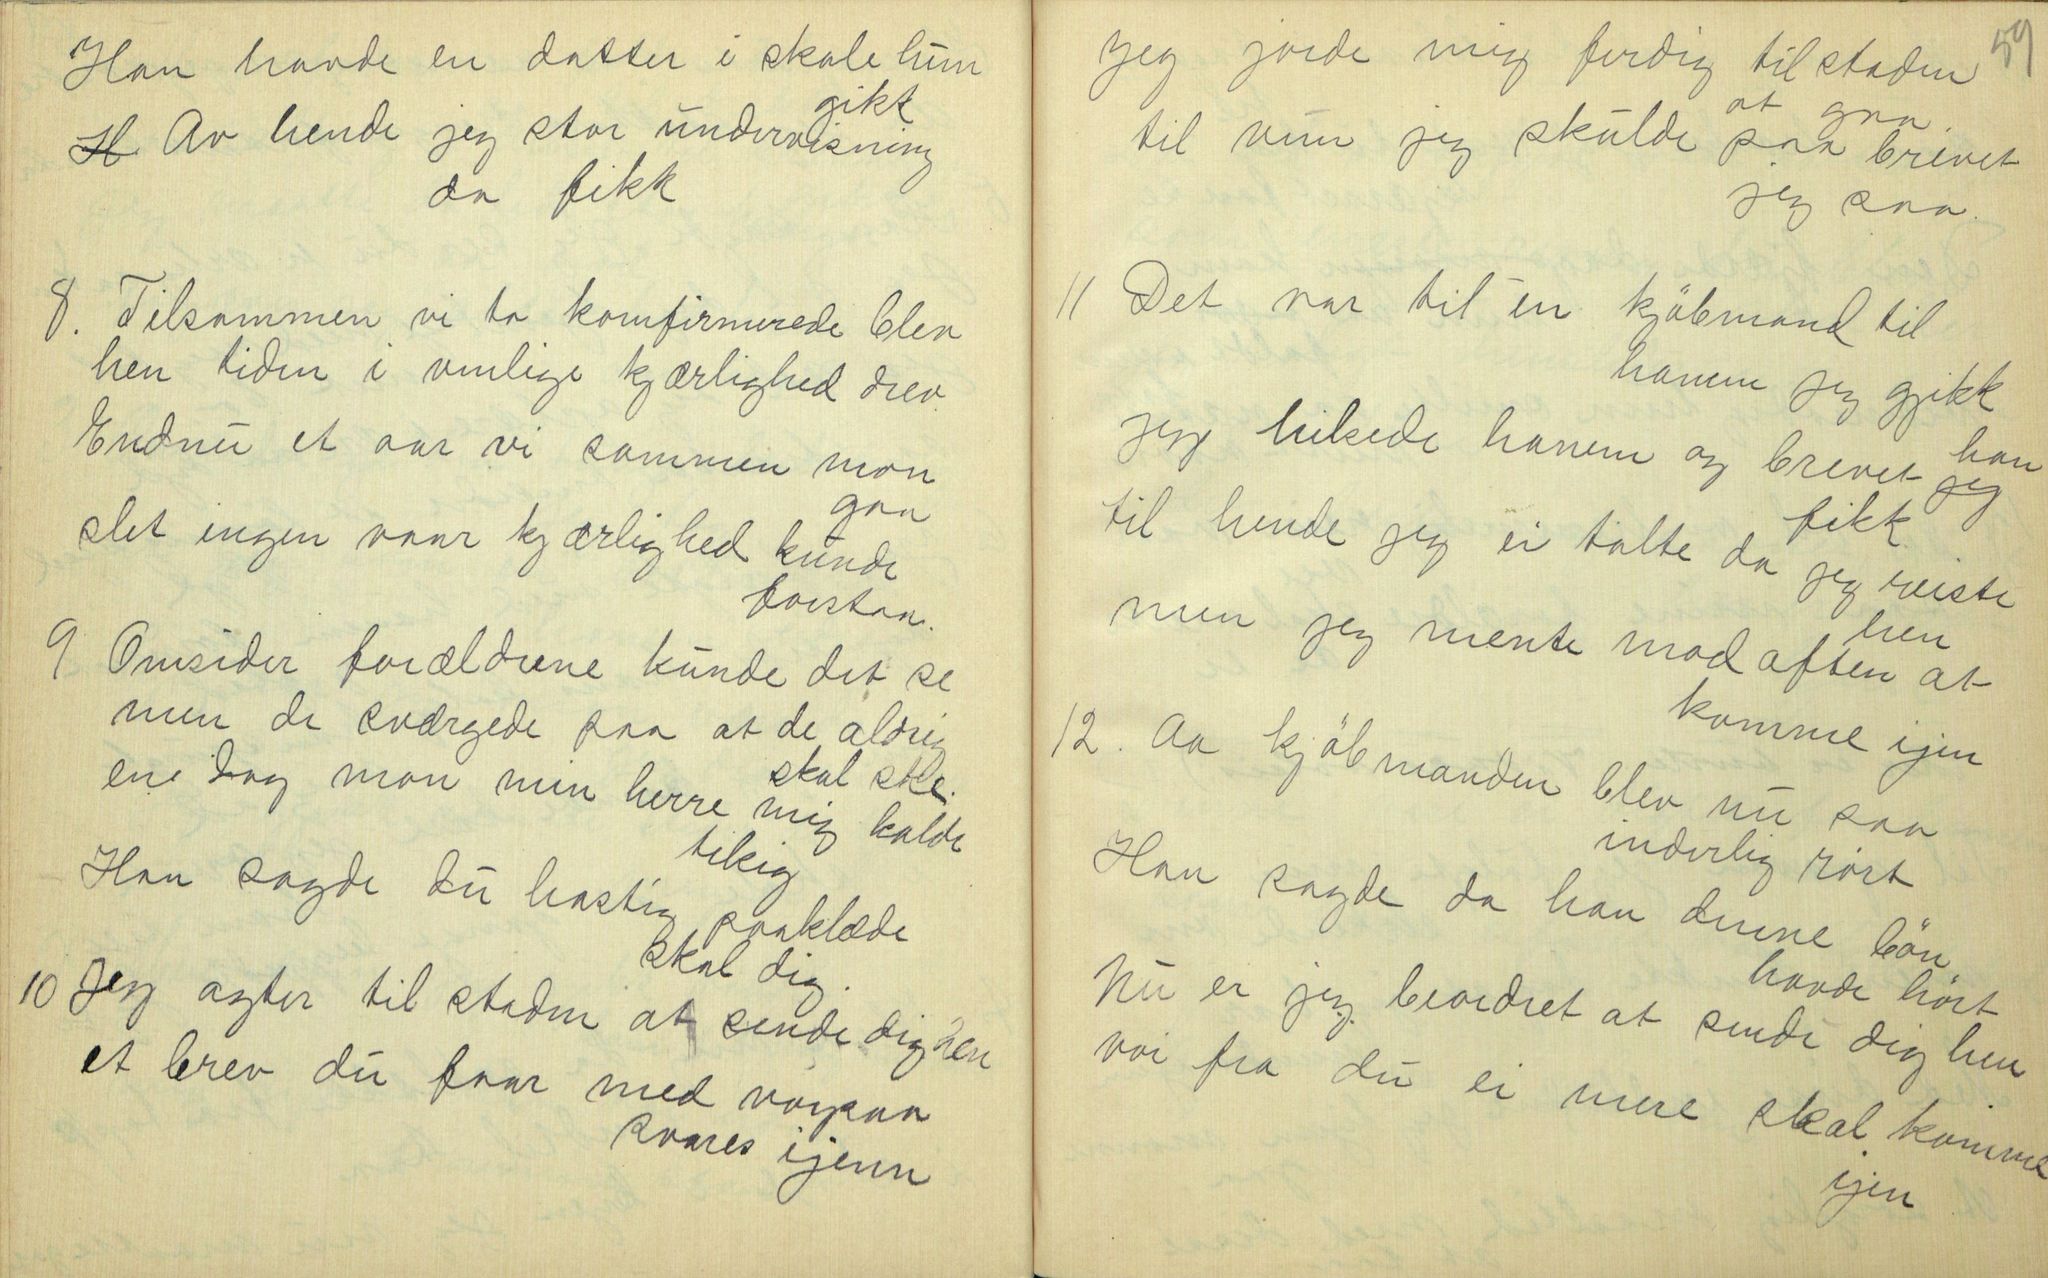 Han havde en datter i skole hun
gikt
H. Av hende jeg stor undervisning
da fikk
8. Tilsammen vi to komfirmerede blev
hen tiden i venlige kjærlighed drev
Endnu et aar vi sammen mon
gaa
slet ingen vaar kjærlighed kunde
forstaa.
9 Omsider forældrene kunde det se
men de sværgede paa at de aldrig
skal ske.
ene dag mon min herre mig kalde
tikig
Han sagde du hastig paaklæde
skal dig.
10 Jeg agter til staden at sende dig hen
et brev du faar med varpaa
svares ijenn
59
Jeg jorde mig ferdig til staden
at gaa.
til vem jeg skulde paa brevet
jeg saa.
11 Det var til en kjöbmand til
hanem jeg gjikk
jeg hilsede hanem og brevet han
jeg
fikk
til hende jeg ei talte da jeg reiste
hen
men jeg mente mod aften at
komme ijen
12. Aa kjöbmanden blev nu saa
inderlig rört
Han sagde da han denne bön
havde hört
Nu er jeg beordret at sende dig hen
vor fra du ei mere skal komme
ijen